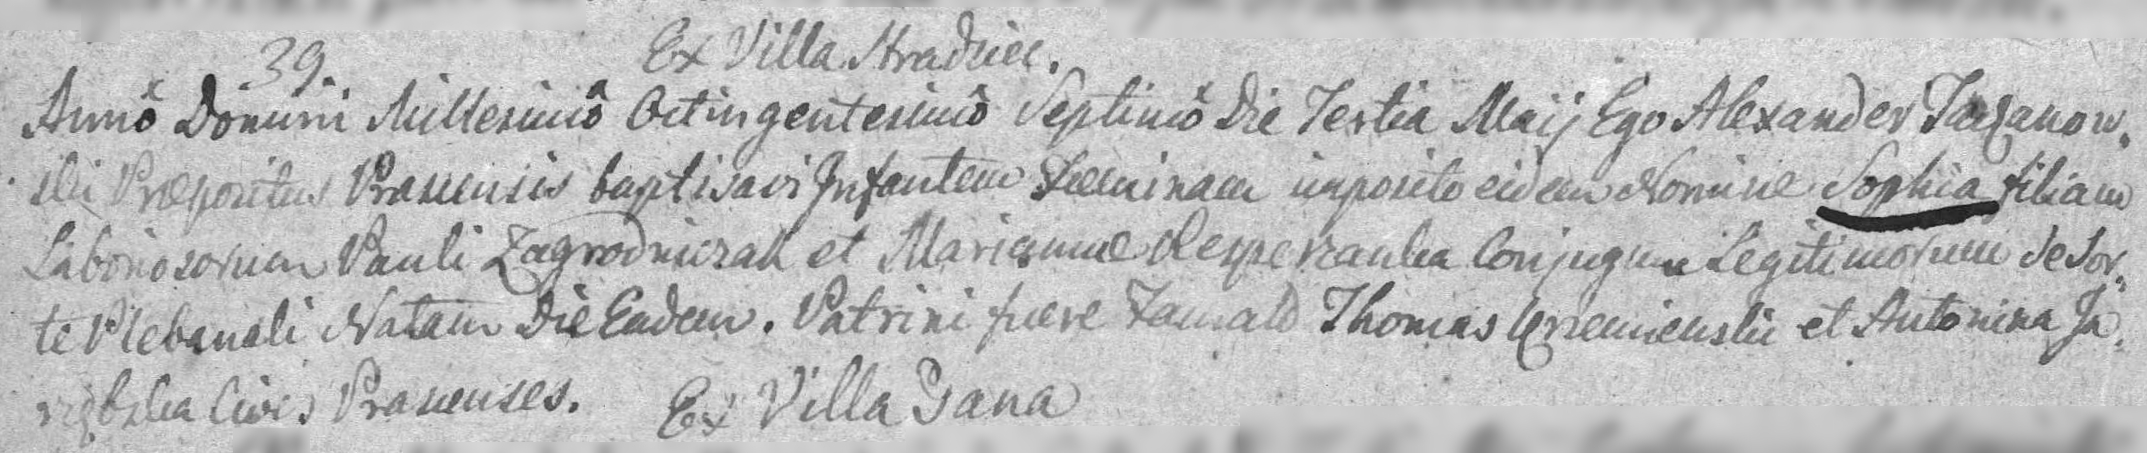 39.
Ex Villa Hradziec.
Annô Domini Millesimô Octingentesimô Septimô Die Tertia Maij Ego Alexander
ski Præpositus Pranensis baptisavi Infantem Fæminam imposito eidem Nomine Sophia filiam
Laboriosorum Pauli Zagrodniczak et Mariannæ Conjugum Legitimorum de Sor-
te Plebanali Natam Die Eadem. Patrini fuere Thomas et Antonina Ja-
rzębska Cives Pranenses.
Ex Villa Gana